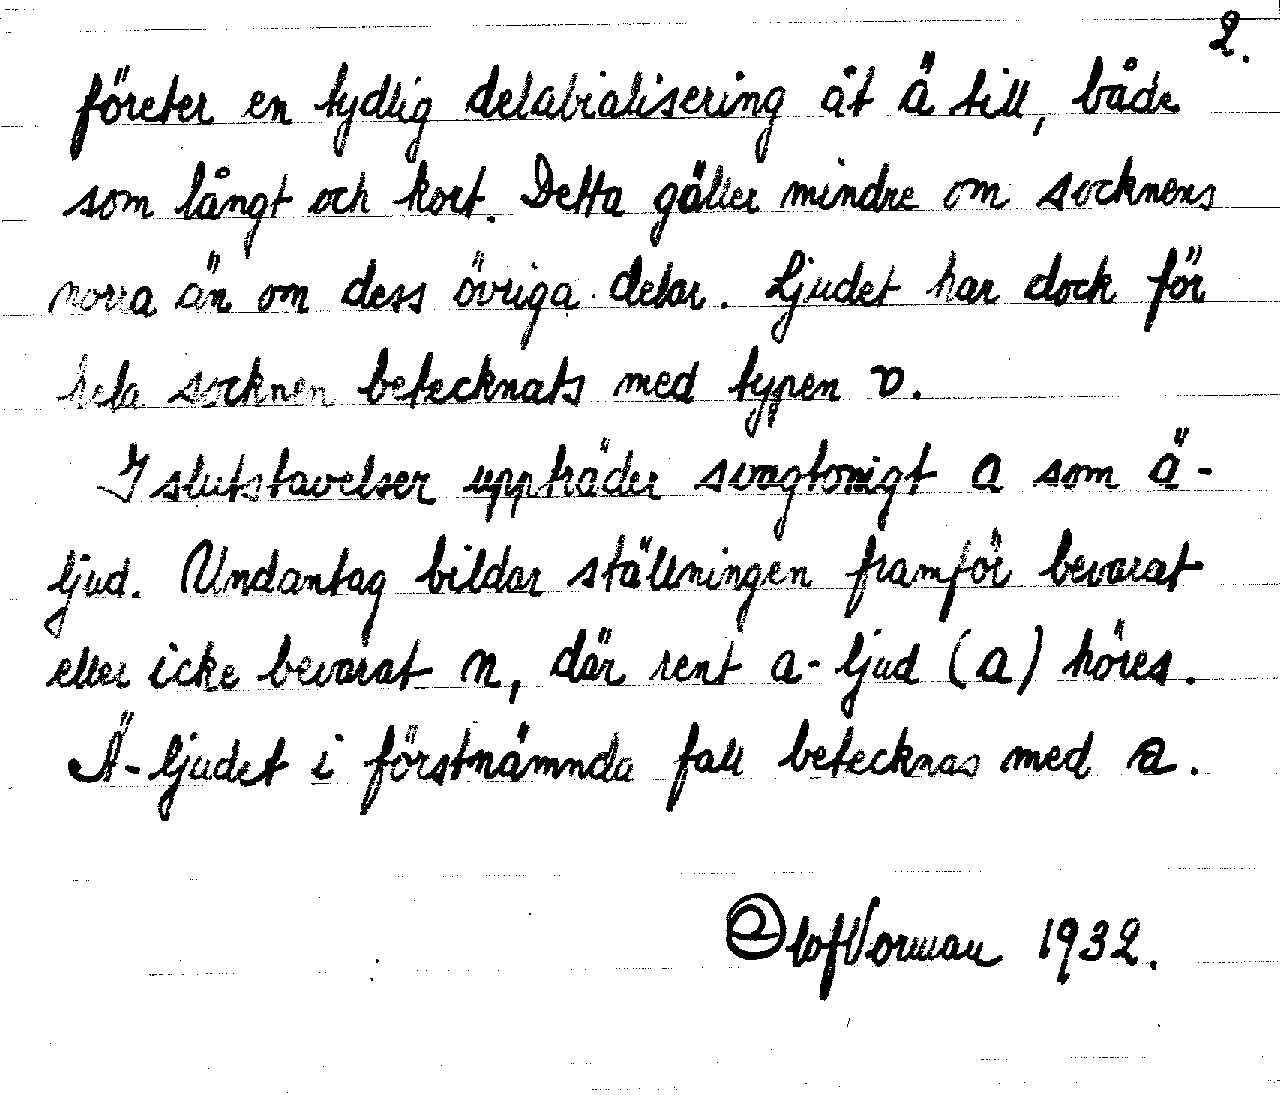 2.
företer en tydlig delabialisering åt ä till, både
som långt och kort. Detta gäller mindre om socknens
norra än om dess övriga delar. Ljudet har dock för
hela socknen betecknats med typen v.
I slutstavelser uppträder svagtonigt a som ä-
ljud. Undantag bildar ställningen framför bevarat
eller icke bevarat n, där rent a-ljud (a) höres.
Ä-ljudet i förstnämnda fall betecknas med a.
Olof Vorman 1932.